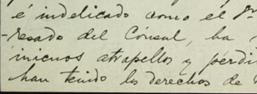 é indelicado como el
resado del Cónsul, ha
inicuos atropellos y perdi
han tenido los derechos de